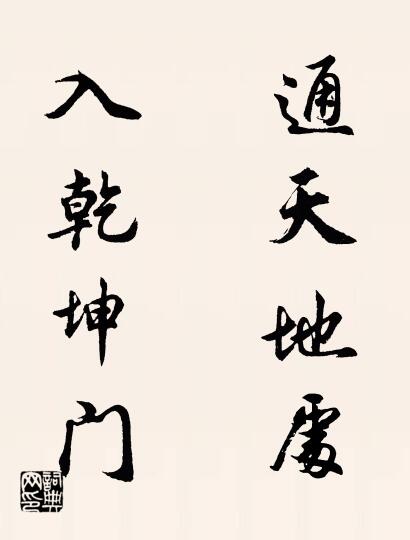 通天地處
入乾坤门
詞典
网印